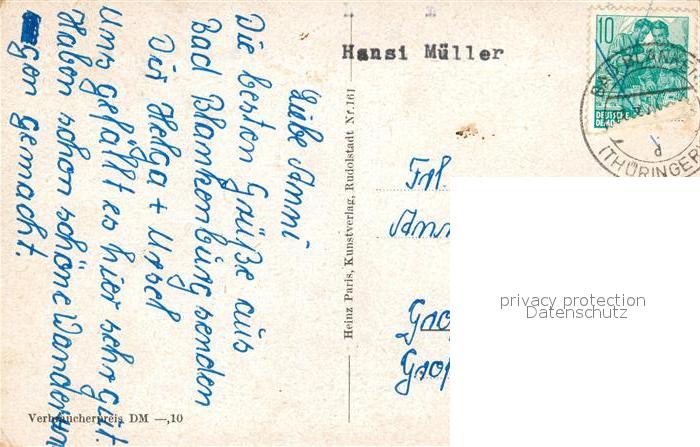 Liebe Anni
Die besten Grüße aus
Bad Blankenburg senden
Dir Helga + Ursel
Uns gefällt es hier sehr gut.
Haben schon schöne Wanderun
gen gemacht.
Verbraucherpreis DM —,10
Heinz Paris, Kunstverlag, Rudolstadt Nr. 161
Hansi Müller
10
DEUTSCHE
DEMO
BAD BLANKE
(THÜRINGER
d
Frl.
Ann
Gro
Groß
privacy protection
Datenschutz